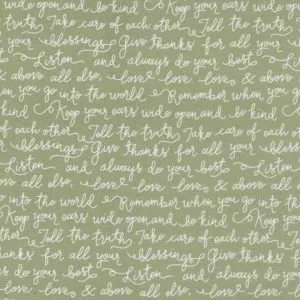 wide open, and be kind Keep your ears wide open
of each other Tell the truth Take care of each other
your blessings Give thanks for all your
Listen and always do your best
& above all else, love love & above all else
when you go into the world Remember when you go
be kind Keep your ears wide open, and be kind
of each other Tell the truth Take care of each other
your blessings Give thanks for all your blessings
Listen and always do your best Listen
above all else, love love love & above all
into the world Remember when you go into the
Keep your ears wide open, and be kind Keep
Tell the truth Take care of each other Tell
Give thanks for all your blessings Give
do your best Listen and always do your
above all else, love love & above all